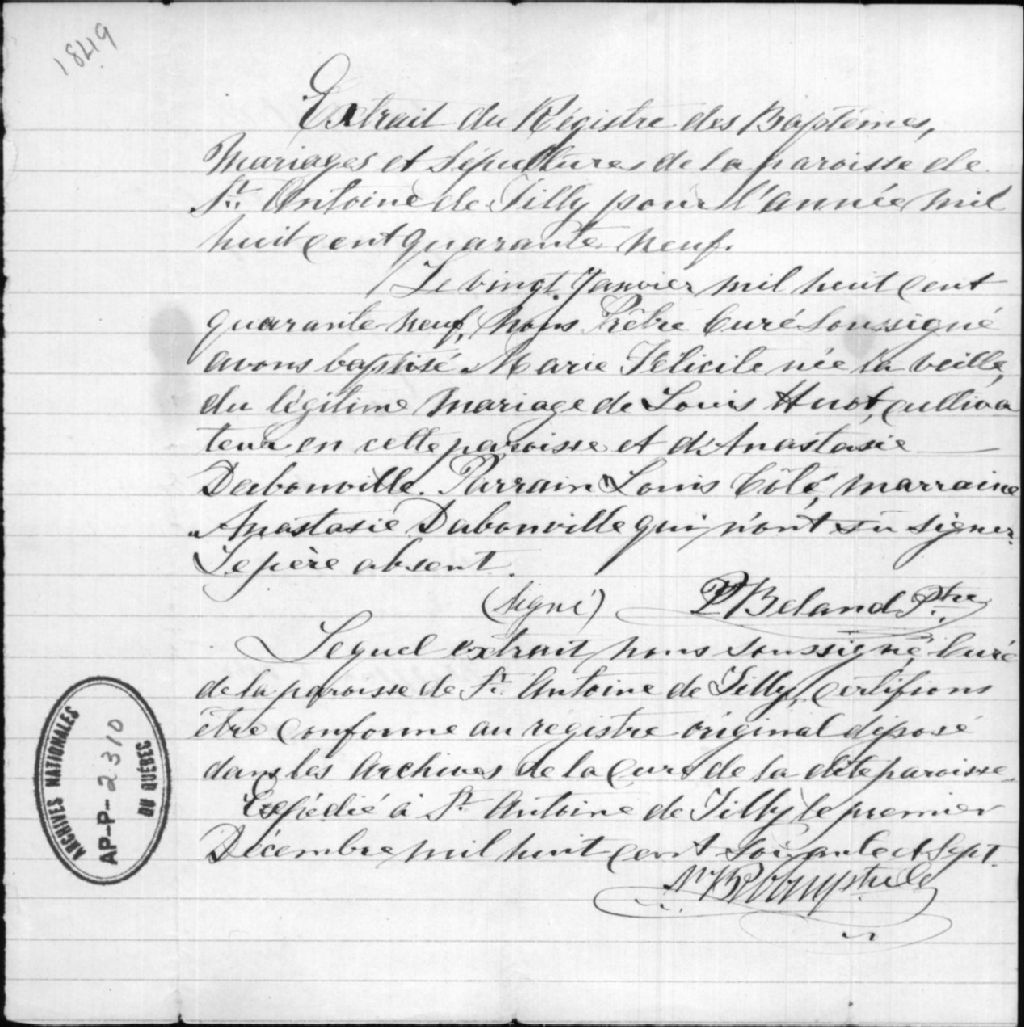 1849
Extrait du Régistre des Baptêmes,
Mariages et Sépultures de la paroisse de
St. Antoine de Tilly pour l'année mil
huit cent quarante neuf.
Le vingt Janvier mil huit cent
quarante neuf, nous Prêtre Curé Soussigné
avons baptisé Marie Félicile née la veille,
du légitime mariage de Louis Huot, cultiva
teur en cette paroisse et d'Anastasie
Dabonville. Parrain Louis Côté, marraine
Anastasie Dabonville qui n'ont su signer.
Le père absent.
(Signé) P Beland Ptre
Lequel extrait, nous soussigné, Curé
de la paroisse de St. Antoine de Tilly, certifions
être conforme au régistre original déposé
dans les Archives de la Cure de la dite paroisse.
Expédié à St. Antoine de Tilly le premier
Décembre mil huit cent soixante et sept.
ARCHIVES NATIONALES
AP-P-2310
DU QUÉBEC